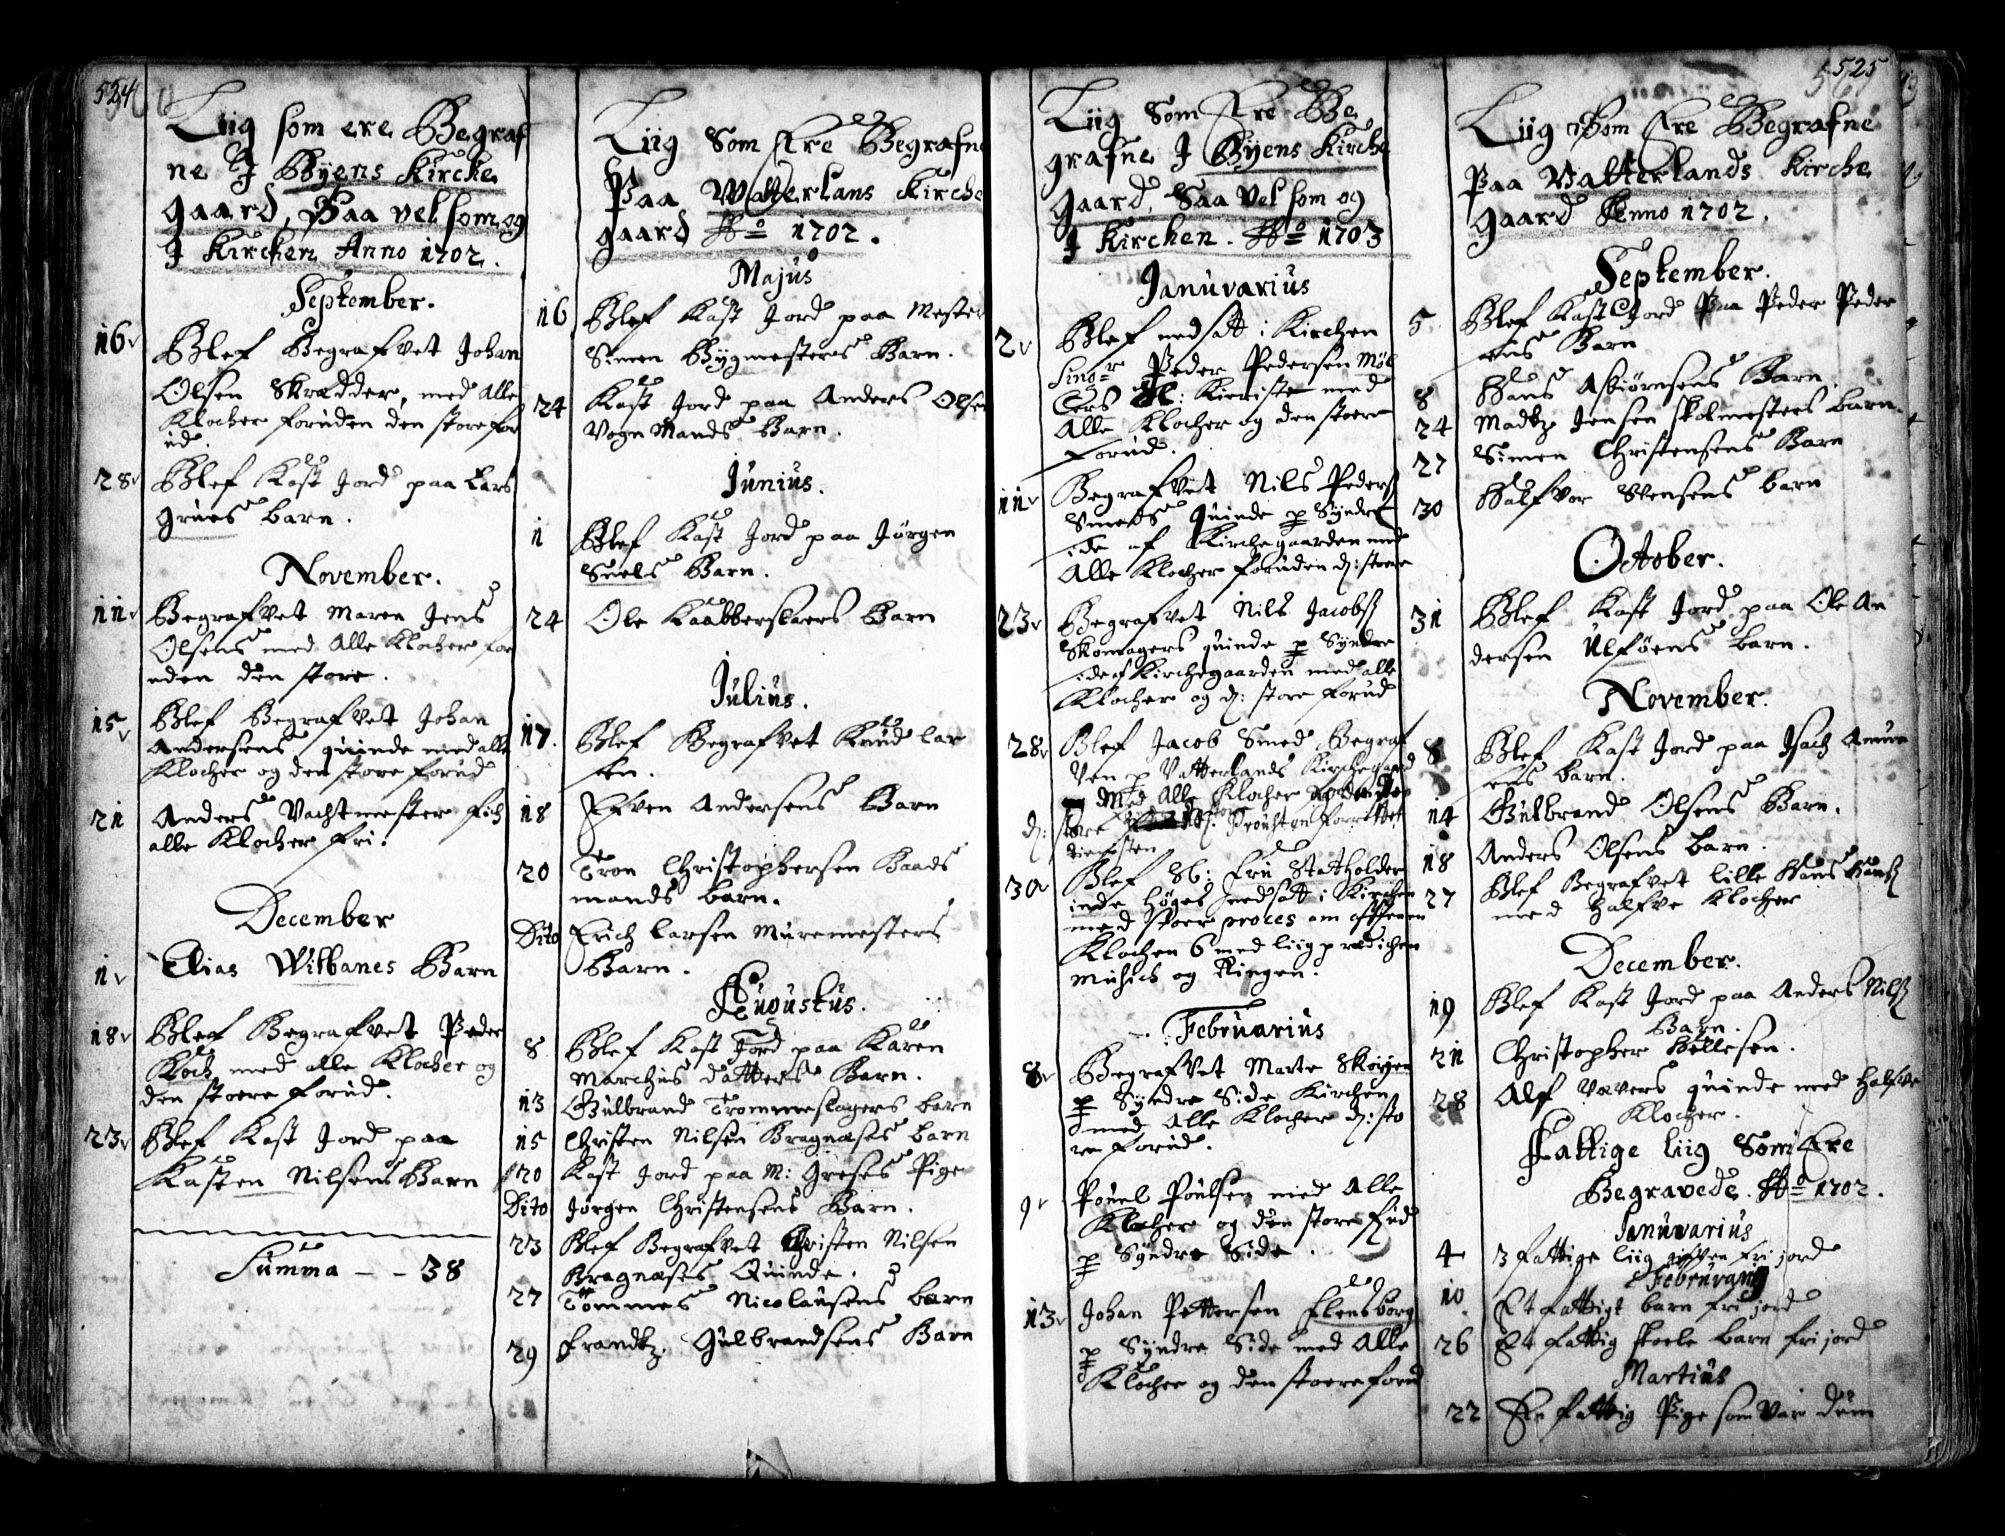 524
Liig som ere Begraf
ne I Byens Kircke
gaard, Saa vel som og
I Kircken Anno 1702.
September.
16 Blef Begrafvet Johan
Olsen Skrædder, med Alle
Klocher foruden den store for
ud.
28 Blef Kast Jord paa Lars
Grues barn.
November.
11 Begrafvet Maren Jens
Olsens med Alle Klocher for
uden den store.
15 Blef Begrafvet Johan
Andersens quinde med alle
Klocher og den store forud
21 Anders Vachtmester fich
alle Klocher fri.
December
1 Elias Wilbanes Barn
18 Blef Begrafvet Peder
Koch med alle Klocher og
den stoere forud.
23 Blef Kast Jord paa
Kasten Nilsens Barn
Summa - - 38
Liig Som Ere Begrafne
Paa Watterlans Kirche
gaard Ao 1702.
Majus
16 Blef Kast Jord paa Mester
Simen Bygmesters Barn.
24 Kast Jord paa Anders Olsen
Vogn Mands Barn.
Junius.
1 Blef Kast Jord paa Jørgen
Snels Barn.
24 Ole Kaabberslaers Barn
Julius.
17. Blef Begrafvet Knud Lar
sen.
18 Efven Andersens Barn
20 Tron Christophersen Baads
mands barn.
Dito Erich Larsen Muremesters
Barn.
Augustus.
8 Blef Kast Jord paa Karen
Marchus datters Barn.
13 Gulbrand Trommeslagers barn
15 Christen Nilsen Bragnæses barn
20 Kast Jord paa M: Greses Pige
Dito Jørgen Christensens Barn.
23 Blef Begrafvet Christen Nilsen
Bragnæses Quinde.
27 Tommes Nicolausens barn
29 Frandtz Gulbrandsens Barn
Liig Som Ere Be
grafne I Byens Kirche
gaard, Saa vel som og
I Kirchen. Ao 1703
Januvarius
2 Blef nedsatt i Kirchen
Singr Peder Pedersen Møl
lers Kieriste med
Alle Klocher og den stoere
forud.
11 Begrafvet Nils Peders
Smeds quinde p Syndre
side af Kirchegaarden med
Alle Klocher foruden d: stoere
23 Begrafvet Nils Jacobs
Skomagers quinde p Syndre
side af Kirchegaarden med alle
Klocher og d: store forud
28 Blef Jacob Smed Begraf
ven p Vatterlands Kirchegaard
Med Alle Klocher
d: store
30 Blef Sl: Fru Statholder
inde Høgs nedsatt i Kirchen
med stoer proces om afftenen
Klochen 6 med liigprædichen
Musich og Ringen.
Februarius
8 Begrafvet Marte Skøyen
p Syndre Side Kirchen
med Alle Klocher d: sto
re forud.
9 Pouel Poulsen med Alle
Klocher og den store fud
p Syndre Side.
13 Johan Pettersen Flensborg
p Syndre Side med Alle
Klocher og den stoere forud
525
Liig Som Ere Begrafne
Paa Vatterlands Kirche
gaard Anno 1702.
September.
5 Blef Kast Jord Paa Peder Peder
sens Barn
8 Hans Asbiørnsens Barn.
24 Madtz Jensen skolmesters barn.
27 Simen Christensens Barn
30 Halfvor Stensens barn
October.
31 Blef Kast Jord paa Ole An
dersen Ulføens barn.
November.
8 Blef Kast Jord paa Isach
barn.
14 Gulbrand Olsens Barn.
18 Anders Olsens barn.
27 Blef Begrafvet lille Hans
med halfve Klocher
December.
19 Blef Kast Jord paa Anders Nils
Barn.
21 Christopher Hellesen.
28 Alf Vævers quinde med halfve
Klocher.
Fattige liig Som Ere
Begravede. Ao 1702.
Januvarius
4 3 fattige liig gifven fri jord
Februvarij
10 Et fattigt barn fri jord
26 Et fattig skoele barn fri jord
Martius
22 En fattig Pige som var dum